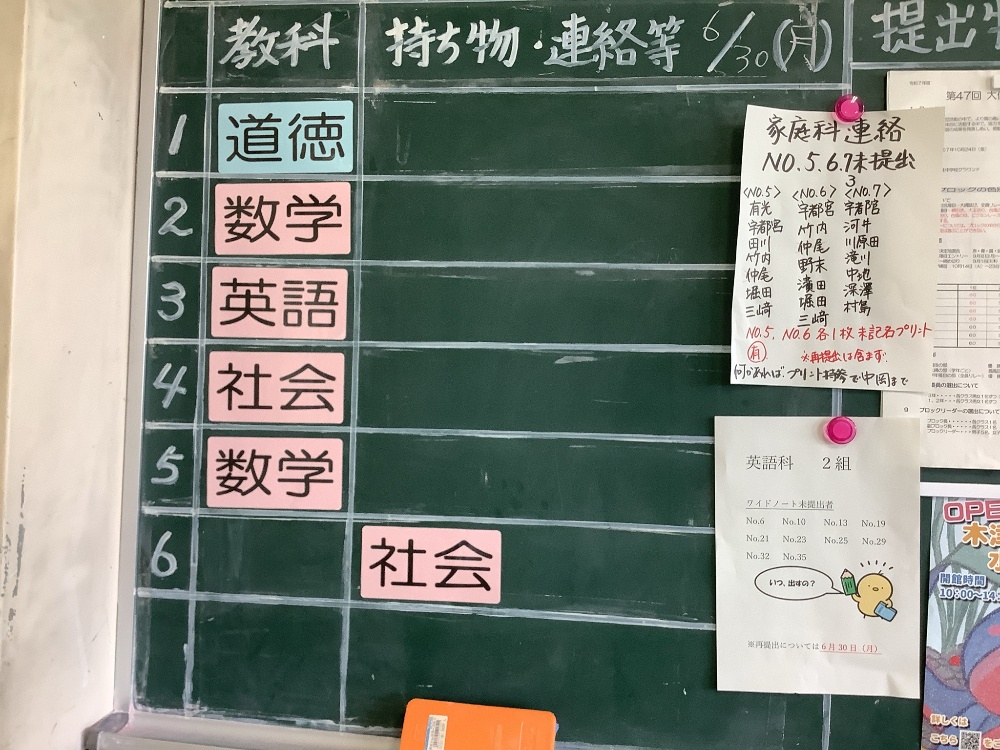 教科
持ち物・連絡等 6/30(月)
提出
1 道徳
2 数学
3 英語
4 社会
5 数学
6 社会
家庭科連絡
NO.5.6.7未提出
3
〈NO.5〉 〈NO.6〉 〈NO.7〉
有光 宇都宮 宇都宮
宇都宮 竹内 河井
田川 仲尾 川原田
竹内 野末 滝川
仲尾 濱田 中池
堀田 堀田 深澤
三﨑 三﨑 村島
NO.5, NO.6 各1枚 未記名プリント
㊊ ※再提出は含まず
何かあれば プリント持参で中岡まで
英語科 2組
ワイドノート未提出者
No.6 No.10 No.13 No.19
No.21 No.23 No.25 No.29
No.32 No.35
いつ、出すの?
※再提出については6月30日(月)
第47回
9 ブロックリーダーの選出について
OPE
木津
水
開館時間
10:00~14
詳しくは
こちら